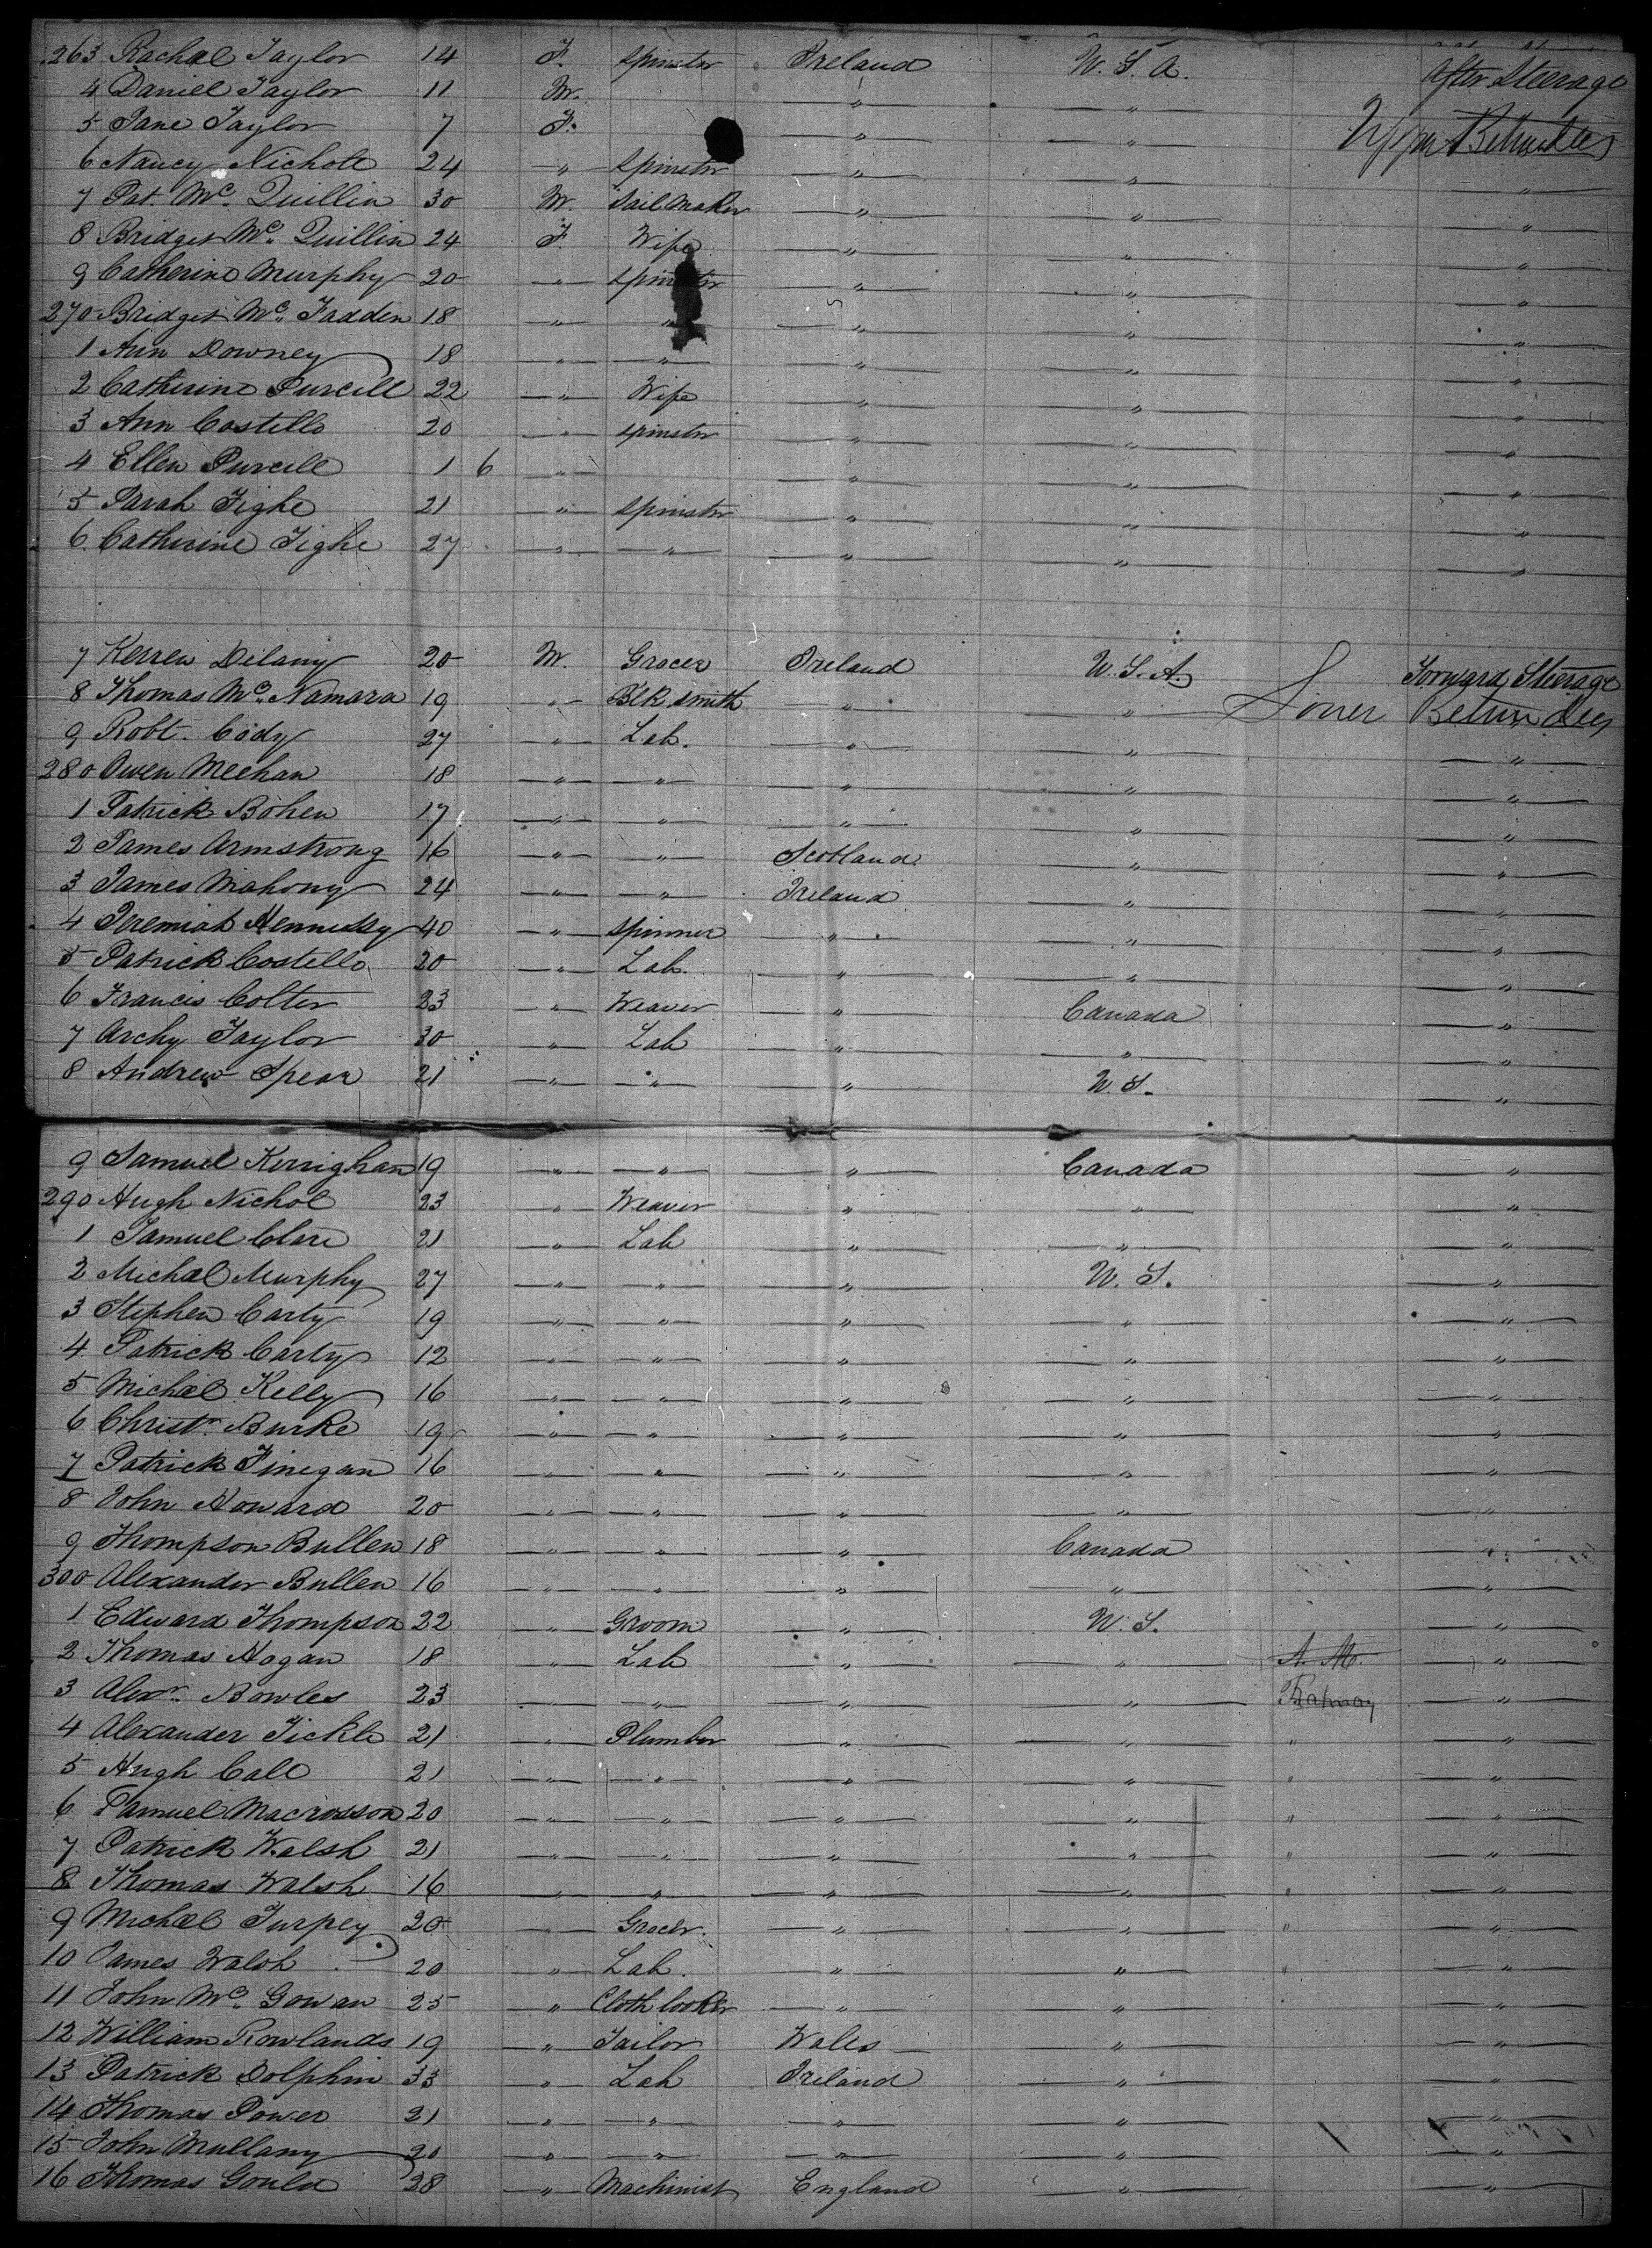 263 Rachael Taylor 14 F. Spinster Ireland U.S.A. After Steerage
4 Daniel Taylor 11 M. " " Upper Betwn Decks
5 Jane Taylor 7 F. " "
6 Nancy Nichole 24 " Spinster " " "
7 Pat. Mc. Quillin 30 M. Sail Maker " " "
8 Bridget Mc. Quillin 24 F. Wife " " "
9 Catherine Murphy 20 " Spinster " " "
270 Bridget Mc. Fadden 18 " " " " "
1 Ann Downey 18 " " " " "
2 Catherine Purcell 22 " Wife " " "
3 Ann Costello 20 " Spinster " " "
4 Ellen Purcell 1 6 " " " "
5 Sarah Tighe 21 " Spinster " " "
6 Catherine Tighe 27 " " " " "
7 Kerren Delany 20 M. Grocer Ireland U.S.A. Forward Steerage
8 Thomas Mc. Namara 19 " Blk. Smith " " Lower Betwn Decks
9 Robt. Cody 27 " Lab. " " "
280 Owen Meehan 18 " " " " "
1 Patrick Bohen 17 " " " " "
2 James Armstrong 16 " " Scotland " "
3 James Mahony 24 " " Ireland " "
4 Jeremiah Hennessy 40 " Spinner " " "
5 Patrick Costello 20 " Lab. " " "
6 Francis Colter 23 " Weaver " Canada "
7 Archy Taylor 30 " Lab " " "
8 Andrew Spear 21 " " " U.S. "
9 Samuel Kerrighan 19 " " " Canada "
290 Hugh Nichol 23 " Weaver " " "
1 Samuel Clare 21 " Lab " " "
2 Michael Murphy 27 " " " U.S. "
3 Stephen Carty 19 " " " " "
4 Patrick Carty 12 " " " " "
5 Michael Kelly 16 " " " " "
6 Christr. Burke 19 " " " " "
7 Patrick Finegan 16 " " " " "
8 John Howard 20 " " " " "
9 Thompson Bullen 18 " " " Canada "
300 Alexander Bullen 16 " " " " "
1 Edward Thompson 22 " Groom " U.S. "
2 Thomas Hogan 18 " Lab " " "
3 Alexr. Bowles 23 " " " " "
4 Alexander Tickle 21 " Plumber " " " "
5 Hugh Call 21 " " " " " "
6 Samuel Macrosson 20 " " " " " "
7 Patrick Walsh 21 " " " " " "
8 Thomas Walsh 16 " " " " " "
9 Michael Turpey 20 " Grocer. " " " "
10 James Walsh 20 " Lab. " " " "
11 John Mc. Gowan 25 " Cloth looker " " "
12 William Rowlands 19 " Tailor Wales " "
13 Patrick Dolphin 33 " Lab Ireland " "
14 Thomas Power 21 " " " " "
15 John Mullany 20 " " " " "
16 Thomas Gould 28 " Machinist England " "